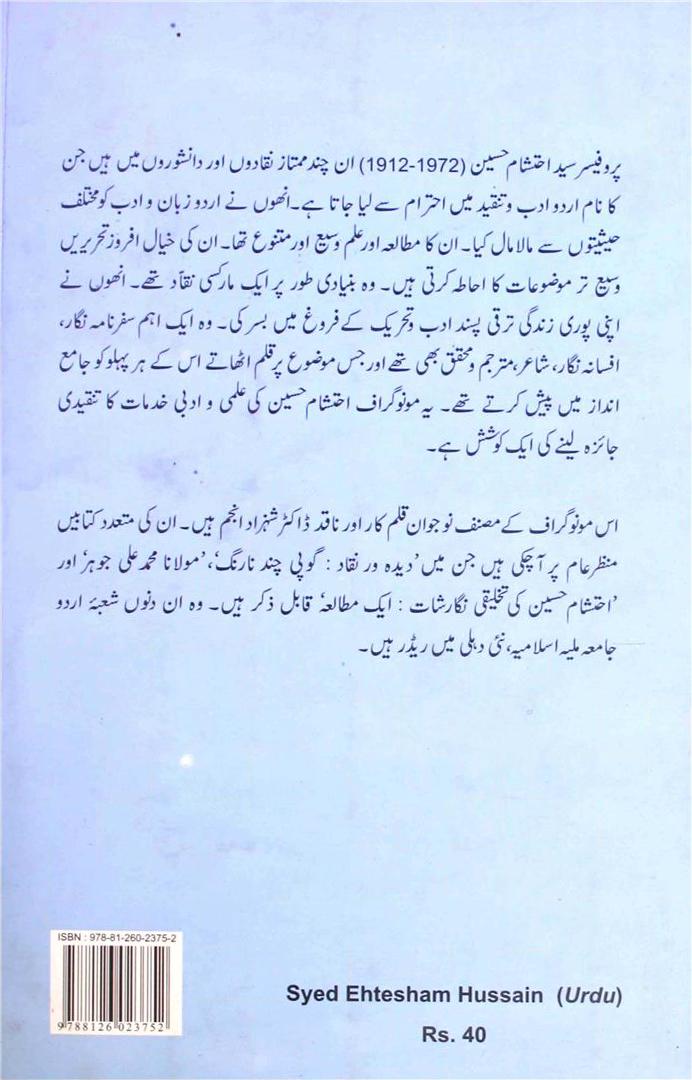 پروفیسر سید احتشام حسین (1912-1972) ان چند ممتاز نقادوں اور دانشوروں میں ہیں جن
کا نام اردو ادب و تنقید میں احترام سے لیا جاتا ہے۔ انھوں نے اردو زبان و ادب کو مختلف
حیثیتوں سے مالا مال کیا۔ ان کا مطالعہ اور علم وسیع اور متنوع تھا۔ ان کی خیال افروز تحریریں
وسیع تر موضوعات کا احاطہ کرتی ہیں۔ وہ بنیادی طور پر ایک مارکسی نقاد تھے۔ انھوں نے
اپنی پوری زندگی ترقی پسند ادب و تحریک کے فروغ میں بسر کی۔ وہ ایک اہم سفرنامہ نگار،
افسانہ نگار، شاعر، مترجم و محقق بھی تھے اور جس موضوع پر قلم اٹھاتے اس کے ہر پہلو کو جامع
انداز میں پیش کرتے تھے۔ یہ مونوگراف احتشام حسین کی علمی و ادبی خدمات کا تنقیدی
جائزہ لینے کی ایک کوشش ہے۔
اس مونوگراف کے مصنف نوجوان قلم کار اور ناقد ڈاکٹر شہزاد انجم ہیں۔ ان کی متعدد کتابیں
منظر عام پر آچکی ہیں جن میں 'دیدہ ور نقاد : گوپی چند نارنگ'، 'مولانا محمد علی جوہر' اور
'احتشام حسین کی تخلیقی نگارشات : ایک مطالعہ' قابل ذکر ہیں۔ وہ ان دنوں شعبۂ اردو
جامعہ ملیہ اسلامیہ، نئی دہلی میں ریڈر ہیں۔
ISBN : 978-81-260-2375-2
9 788126 023752
Syed Ehtesham Hussain (Urdu)
Rs. 40